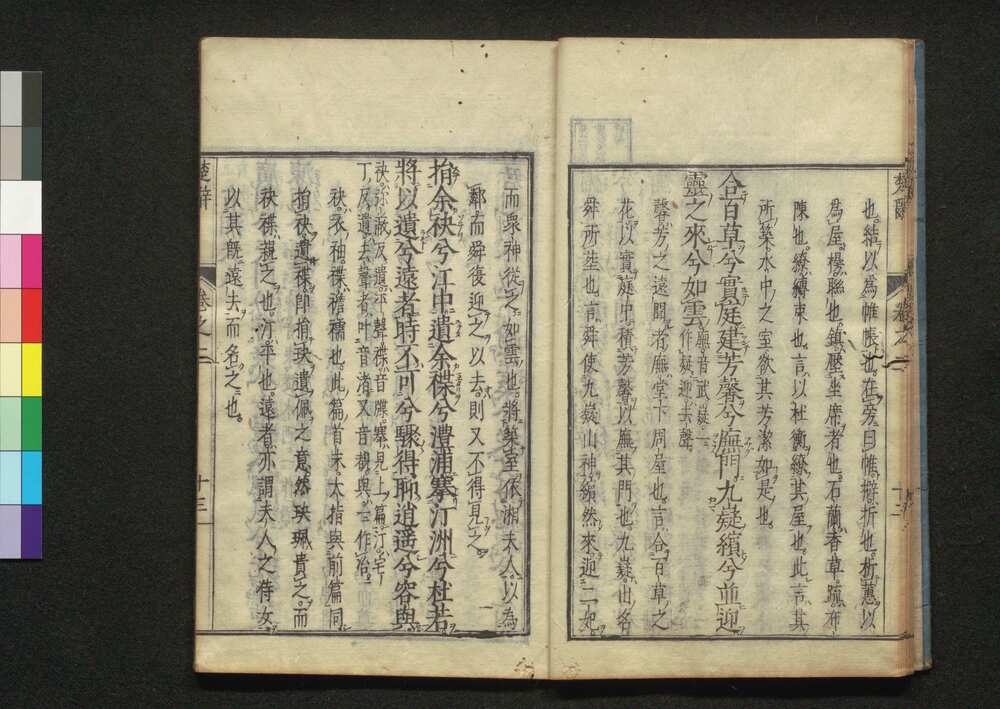 也。結以爲帷帳也。在旁曰帷。擗。折也。析蕙以
爲屋櫋聯也。鎮。壓坐席者也。石蘭。香草。疏。布
陳也。繚。縛束也。言以杜衡繚其屋也。此言其
所築水中之室。欲其芳潔如是也。
合百草兮實庭建芳馨兮廡門九嶷繽兮並迎
靈之來兮如雲廡音武嶷一作疑迎去聲
馨。芳之遠聞者。廡。堂下周屋也。言合百草之
花。以實庭中。積芳馨。以廡其門也。九嶷。山名。
舜所葬也。言舜使九嶷山神。繽然來迎二妃。
而衆神從之如雲也。將築室依湘夫人。以爲
鄰。而舜復迎之以去。則又不得見之。
捐余袂兮江中遺余褋兮澧浦搴汀洲兮杜若
將以遺兮遠者時不可兮驟得聊逍遥兮容與
袂彌蔽反遺平聲褋音牒搴見上篇汀它
丁反遺去聲者叶音渚又音覩與一作冶
袂。衣袖。褋。襜襦也。此篇首末。大指與前篇同。
捐袂遺褋。即捐玦遺佩之意。然玦珮貴之。而
袂褋親之也。汀。平也。遠者。亦謂夫人之侍女。
以其既遠去而名之也。
楚辞
卷之二
十三